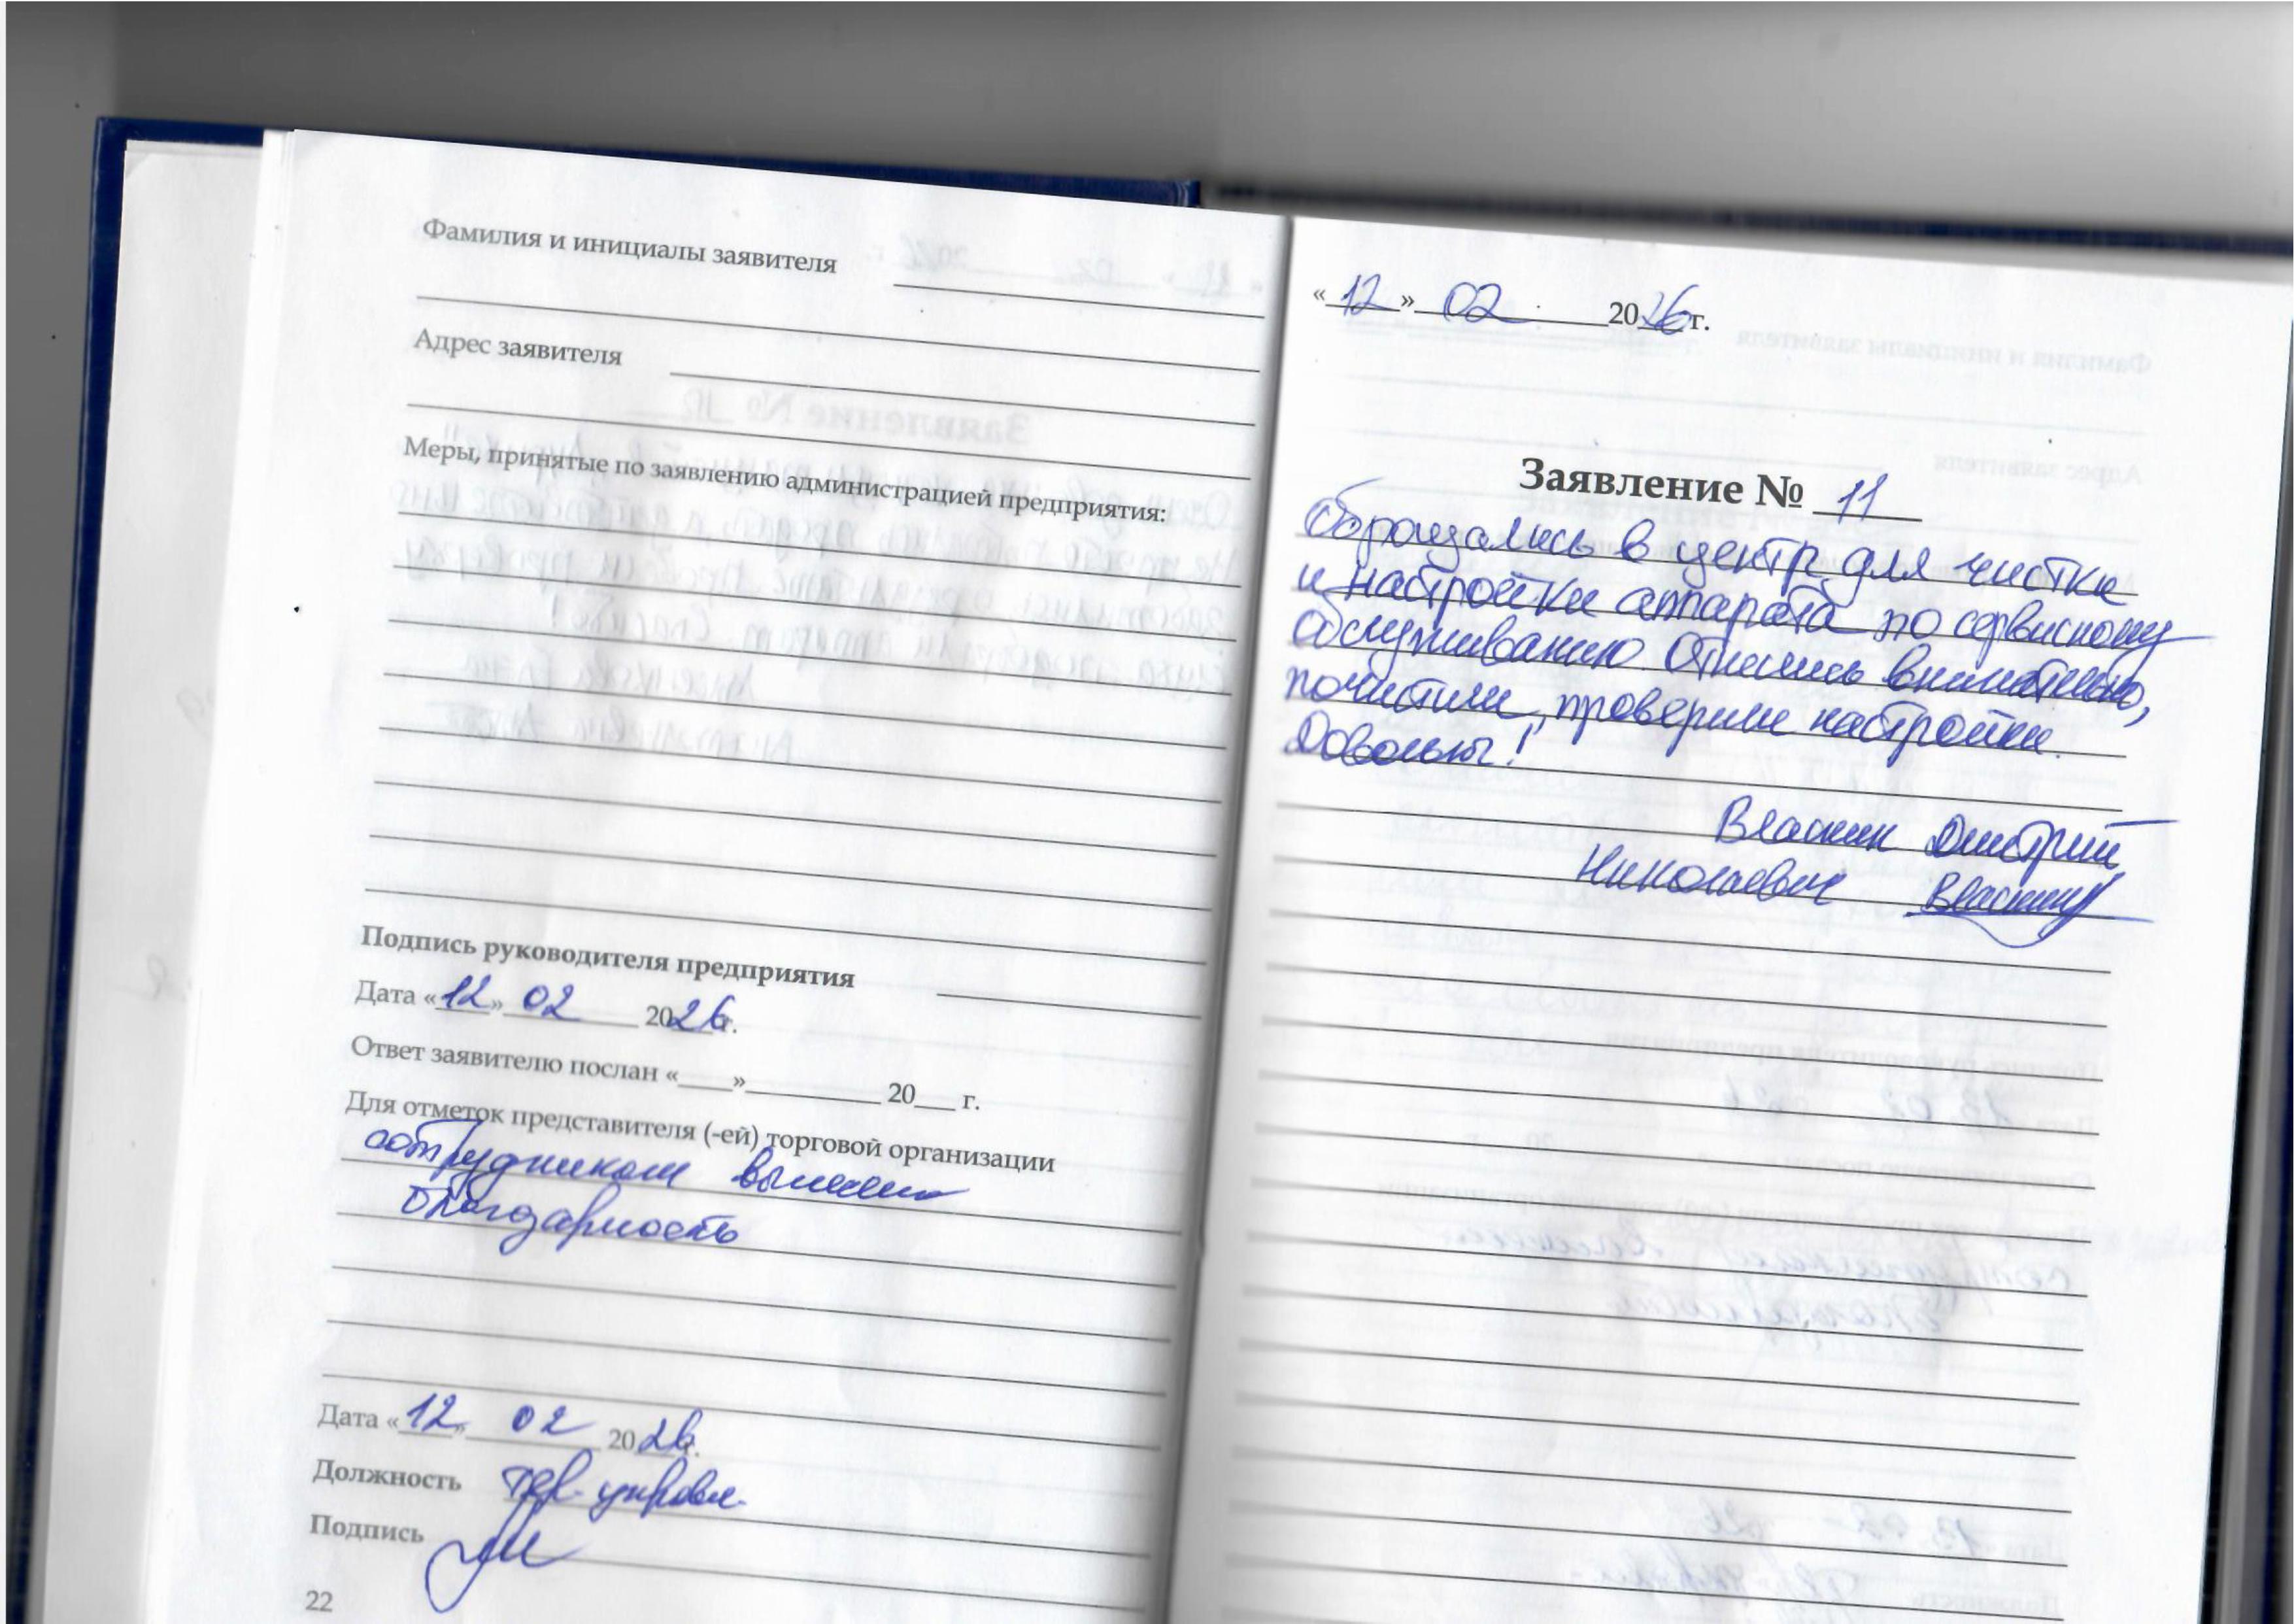 Фамилия и инициалы заявителя
Адрес заявителя
Меры, принятые по заявлению администрацией предприятия:
Подпись руководителя предприятия
Дата «12» 02 2026 г.
Ответ заявителю послан «___»__________ 20___ г.
Для отметок представителя (-ей) торговой организации
сотрудникам
благодарность
Дата «12» 02 2026 г.
Должность тер. управл.
Подпись
22
«12» 02 2026 г.
Заявление № 11
Обращались в центр для чистки
и настройки аппарата по сервисному
обслуживанию Отнеслись внимательно,
почистили, проверили настройки.
Довольны!
Власник Дмитрий
Николаевич